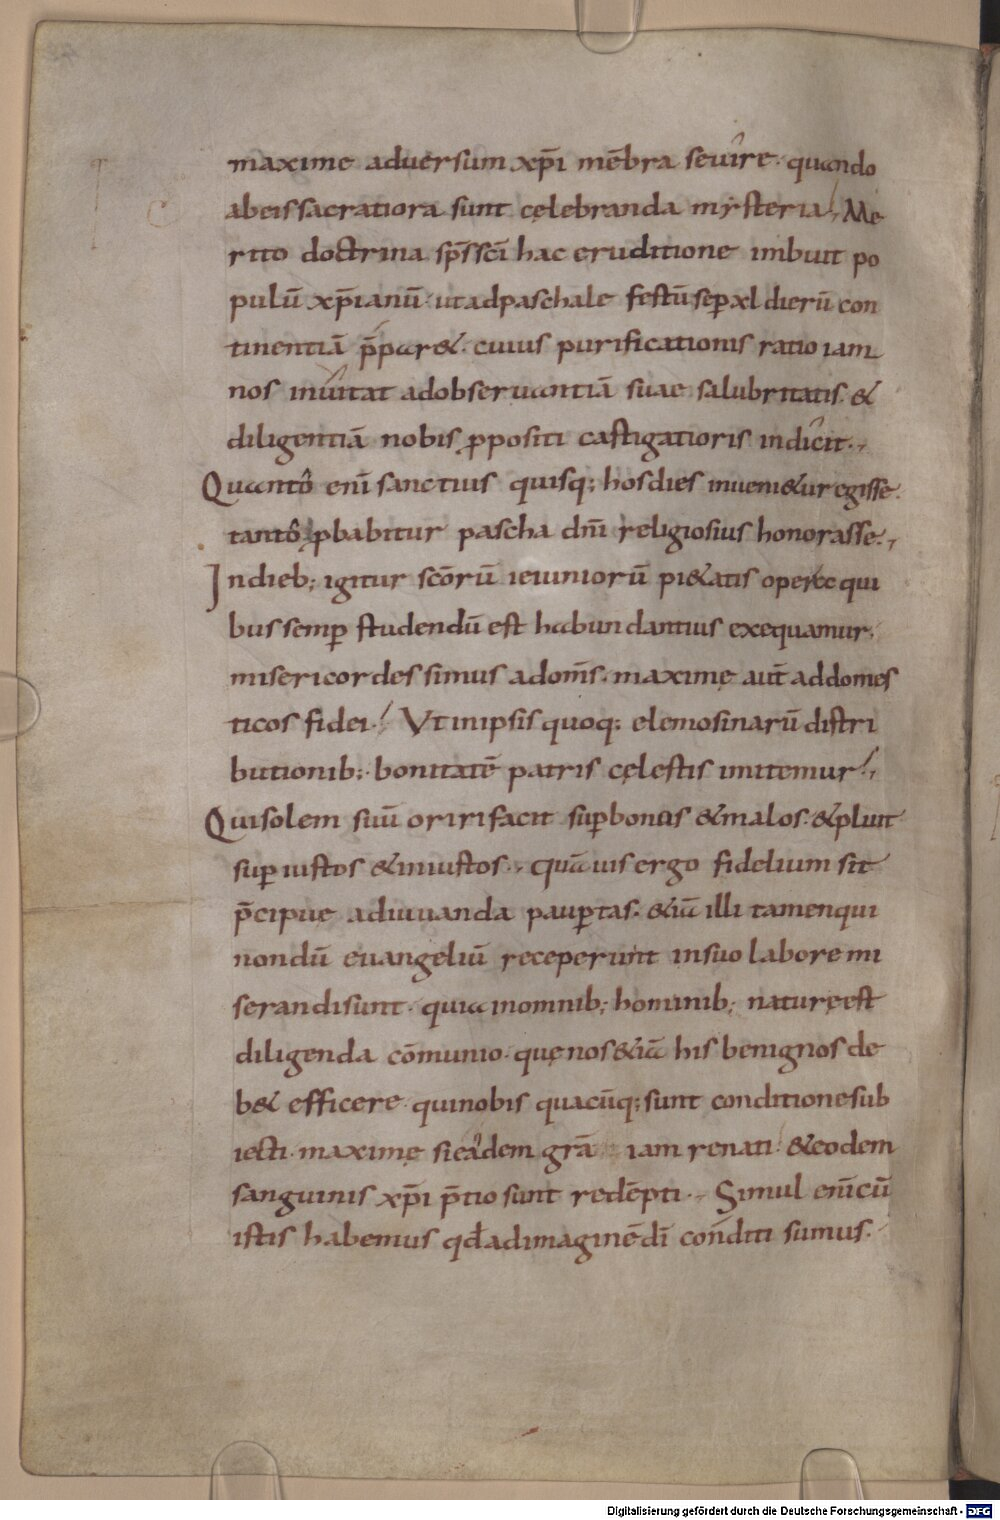 maxime adversum xp̄i mēbra sevire · quando
ab eis sacratiora sunt cęlebranda mysteria; Me
rito doctrina sp̄s sc̄i hac eruditione imbuit po
pulū xp̄ianū · ut ad paschale festū se p̱ xl dierū con
tinentiā p̄par& · cuius purificationis ratio iam
nos invitat ad observantiā suae salubritatis · &
diligentiā nobis ꝓpositi castigatioris indicit ·,
Quanto enī sanctius quisq; hos dies inueni&ur egisse ·
tanto ꝓbabitur pascha dn̄i religiosius honorasse ·,
In dieb; igitur sc̄orū ieiuniorū pi&atis opera qui
bus semꝑ studendū est habundantius exequamur;
misericordes simus ad om̄s · maximę aut̄ ad domes
ticos fidei · Ut in ipsis quoq; elemosinarū distri
butionib; · bonitatē patris cęlestis imitemur;
Qui solem suū oriri facit suꝑ bonos & malos · & pluit
suꝑ iustos & iniustos ·, Quāuis ergo fidelium sit
p̄cipue adiuuanda pauꝑtas · &iā illi tamen qui
nondū euangeliū receperunt in suo labore mi
serandi sunt · quia in omnib; hominib; naturę est
diligenda cōmunio · quę nos &iā his benignos de
b& efficere · qui nobis quacūq; sunt conditione sub
iecti · maximę si eadem gr̄a iam renati · & eodem
sanguinis xp̄i p̄tio sunt redēpti ·, Simul enī cū
istis habemus qd̄ ad imaginē dī conditi sumus ·
Digitalisierung gefördert durch die Deutsche Forschungsgemeinschaft - DFG